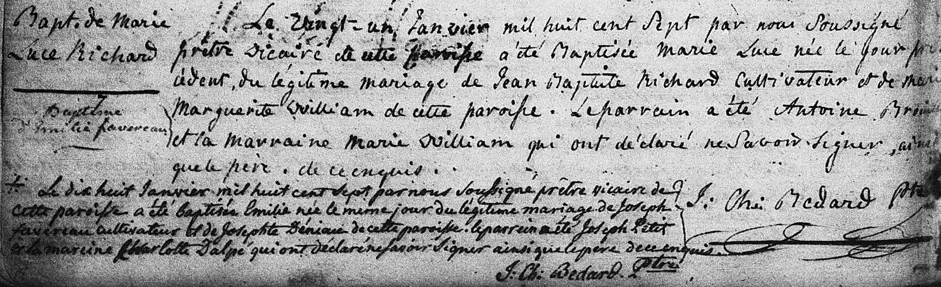 Bapt. de Marie
Luce Richard
Le vingt-un Janvier mil huit cent Sept par nous Soussigné
prêtre vicaire de cette paroisse a été Baptisée Marie Luce née le jour pré
cédent, du légitime mariage de Jean Baptiste Richard Cultivateur et de marie
Marguerite William de cette paroisse. Le parrain a été Antoine
et la Marraine Marie William qui ont déclaré ne Savoir Signer, ainsi
que le père. de ce enquis.
J: Ch: Bedard Ptre
Baptême
d'Emilie favereau
+ Le dix huit Janvier mil huit cent Sept par nous Soussigné prêtre vicaire de
cette paroisse a été baptisée Emilie née le meme jour du légitime mariage de Joseph
favereau Cultivateur et de Josephte Deniau de cette paroisse. le parrain a été Joseph Petit
et la mareine Charlotte Dalpé qui ont déclaré ne savoir Signer ainsi que le père de ce enquis.
J: Ch: Bedard. Ptre